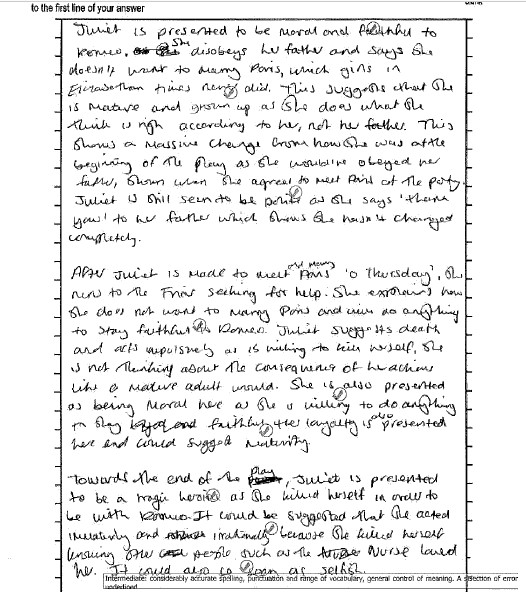 to the first line of your answer
Juliet is presented to be moral and faithful to
Romeo. She disobeys her father and says she
doesn't want to marry Paris, which girls in
Elizabethan times never did. This suggests that she
is mature and grown up as she does what she
think is righ according to her, not her father. This
shows a massive change from how she was at the
beginning of the play as she would've obeyed her
father, shown when she agreed to meet Paris at the party.
Juliet is still seen to be polite as she says 'thank
you' to her father which shows she hasn't changed
completely.
After Juliet is made to meet and marry Paris 'o Thursday', she
runs to the Friar seeking for help. She explains how
she does not want to marry Paris and will do anything
to stay faithful to Romeo. Juliet suggests death
and acts impulsively as is willing to kill herself, she
is not thinking about the consequence of her actions
like a mature adult would. She is also presented
as being moral here as she is willing to do anything
to stay loyal and faithful, the loyalty is also presented
here and could suggest maturity.
Towards the end of the play, Juliet is presented
to be a tragic heroine as she killed herself in order to
be with Romeo. It could be suggested that she acted
immaturely and irrationally because she killed herself
knowing other people such as the Nurse loved
her. It could also be seen as selfish.
Intermediate: considerably accurate spelling, punctuation and range of vocabulary, general control of meaning. A selection of error
underlined